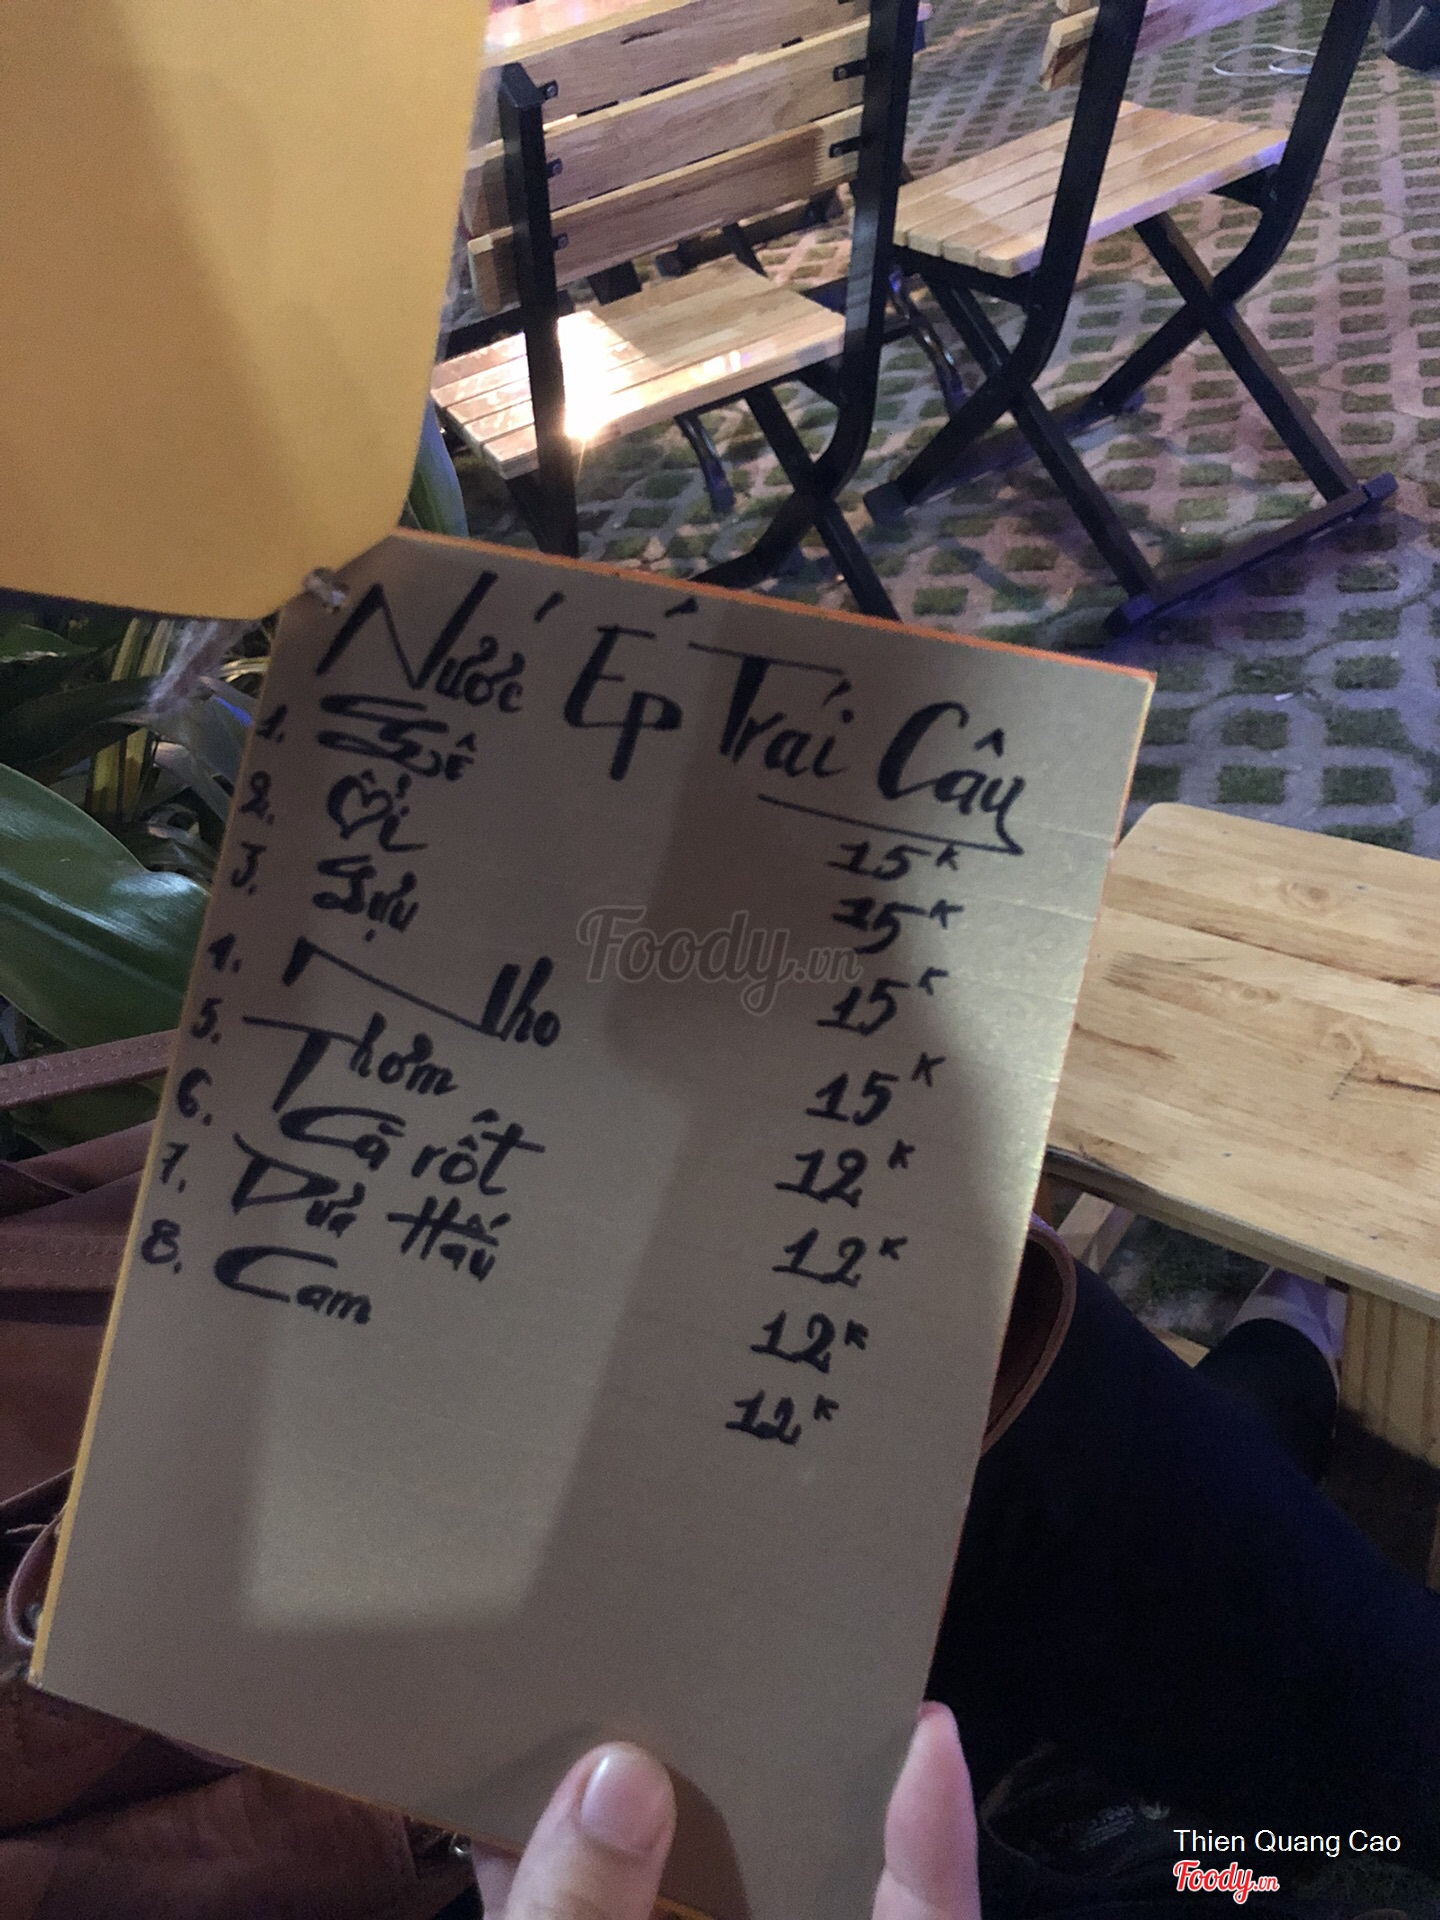 Nước Ép Trái Cây
1. Sơ Ri 15K
2. Ổi 15K
3. Lựu 15K
4. Nho 15K
5. Thơm 12K
6. Cà rốt 12K
7. Dưa Hấu 12K
8. Cam 12K
Foody.vn
Thien Quang Cao
Foody.vn